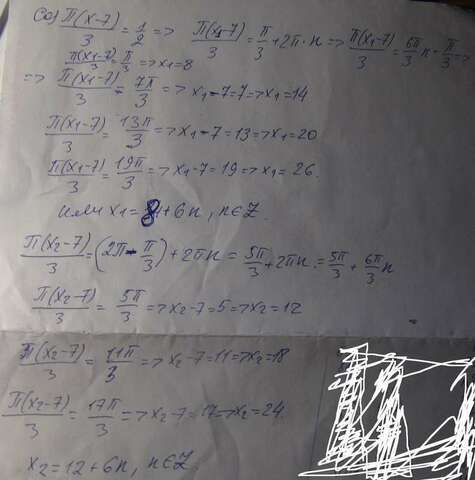 Cos π(x-7)/3 = 1/2 => π(x1-7)/3 = π/3 + 2π·n => π(x1-7)/3 = 6π/3 n - π/3 =>
π(x1-7)/3 = π/3 => x1 = 8
=> π(x1-7)/3 = 7π/3 => x1-7=7 => x1 = 14
π(x1-7)/3 = 13π/3 => x1-7 = 13 => x1 = 20
π(x1-7)/3 = 19π/3 => x1-7 = 19 => x1 = 26.
или x1 = 8 + 6n, n∈Z.
π(x2-7)/3 = (2π - π/3) + 2πn = 5π/3 + 2πn = 5π/3 + 6π/3 n
π(x2-7)/3 = 5π/3 => x2-7=5 => x2 = 12
π(x2-7)/3 = 11π/3 => x2-7=11 => x2=18
π(x2-7)/3 = 17π/3 => x2-7=17 => x2=24.
x2 = 12+6n, n∈Z.